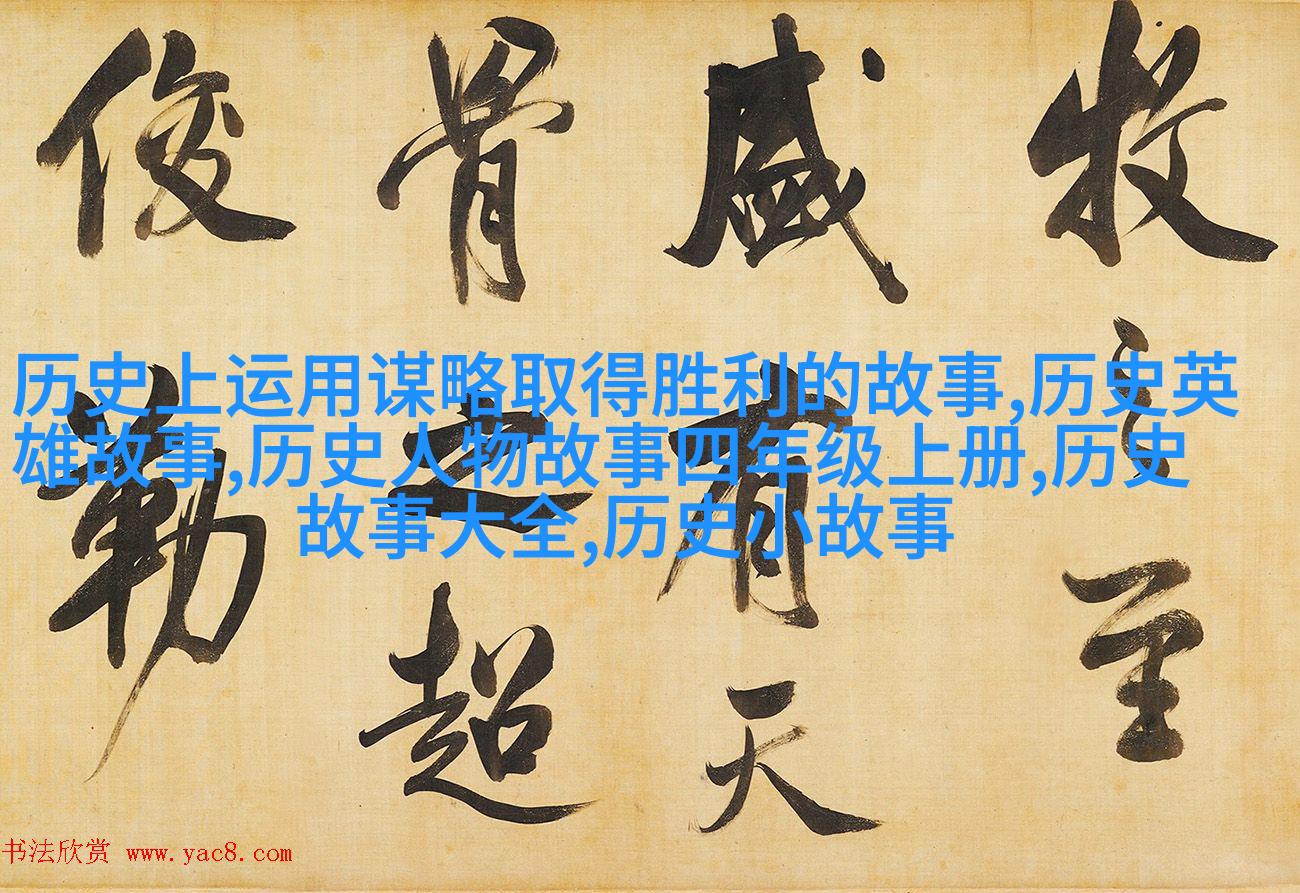 牧之至
盛有天
骨之超
俊勒
历史上运用谋略取得胜利的故事,历史英
雄故事,历史人物故事四年级上册,历史
故事大全,历史小故事
书法欣赏 www.yac8.com